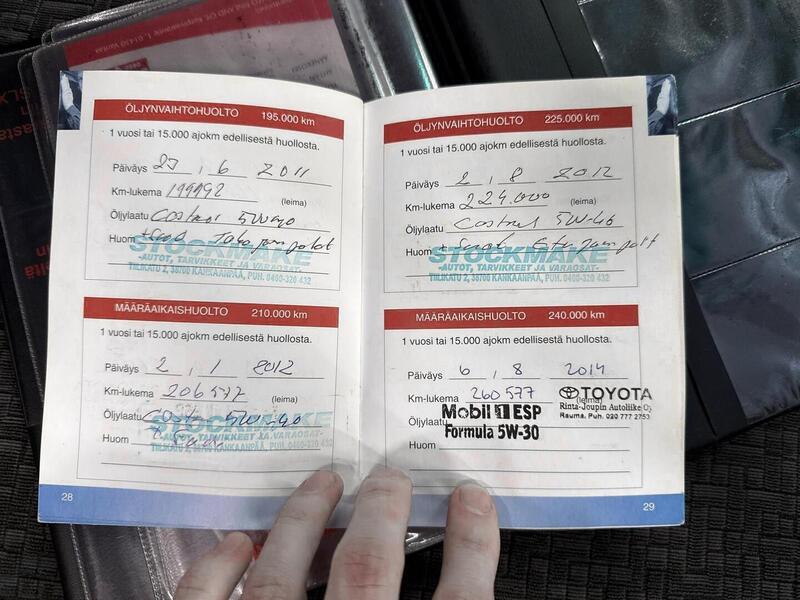 ÖLJYNVAIHTOHUOLTO 195.000 km
1 vuosi tai 15.000 ajokm edellisestä huollosta.
Päiväys 27 , 6 2011
Km-lukema 199192 (leima)
Öljylaatu Castrol 5W40
Huom
STOCKMAKE
-AUTOT, TARVIKKEET JA VARAOSAT-
TIILIKATU 2, 38700 KANKAANPÄÄ, PUH. 0400-320 432
MÄÄRÄAIKAISHUOLTO 210.000 km
1 vuosi tai 15.000 ajokm edellisestä huollosta.
Päiväys 2 , 1 2012
Km-lukema 206577 (leima)
Öljylaatu 5W-40
Huom
STOCKMAKE
-AUTOT, TARVIKKEET JA VARAOSAT-
TIILIKATU 2, 38700 KANKAANPÄÄ, PUH. 0400-320 432
28
ÖLJYNVAIHTOHUOLTO 225.000 km
1 vuosi tai 15.000 ajokm edellisestä huollosta.
Päiväys 2 , 8 2012
Km-lukema 224.000 (leima)
Öljylaatu Castrol 5W-40
Huom
STOCKMAKE
-AUTOT, TARVIKKEET JA VARAOSAT-
TIILIKATU 2, 38700 KANKAANPÄÄ, PUH. 0400-320 432
MÄÄRÄAIKAISHUOLTO 240.000 km
1 vuosi tai 15.000 ajokm edellisestä huollosta.
Päiväys 6 , 8 2014
Km-lukema 260577 (leima)
TOYOTA
Rinta-Joupin Autoliike Oy
Rauma. Puh. 020 777 2753
Öljylaatu Mobil 1 ESP
Formula 5W-30
Huom
29